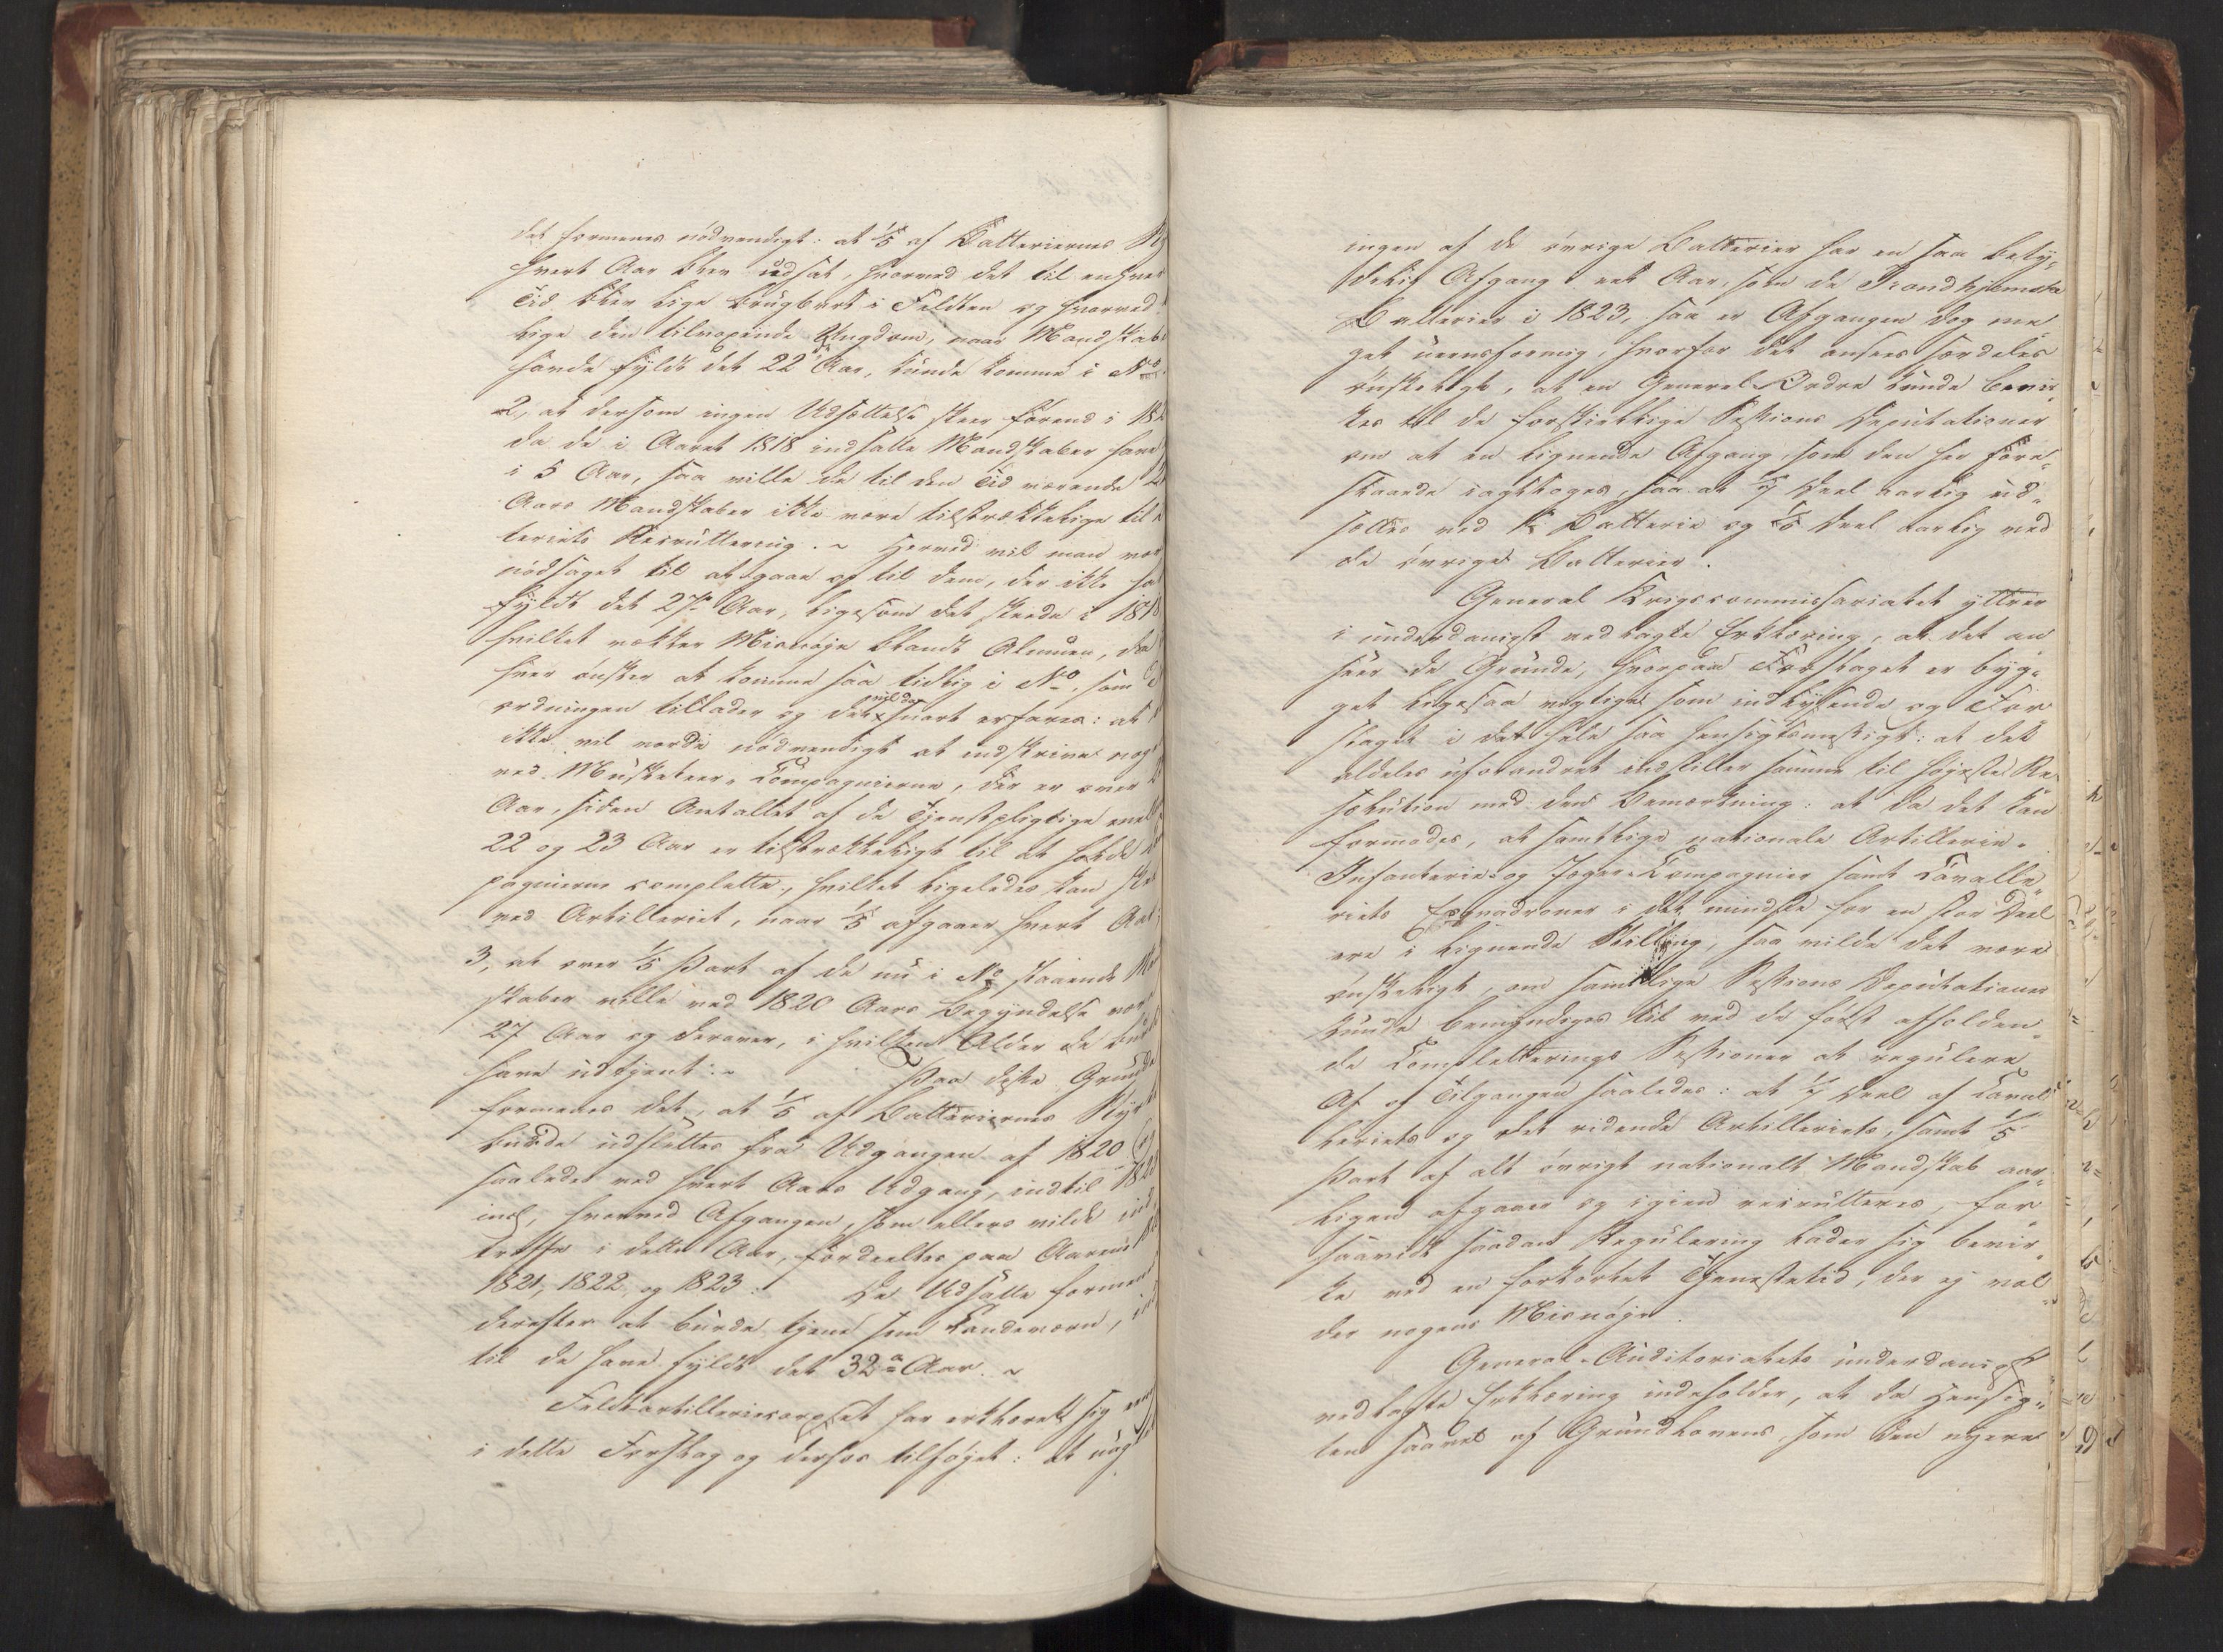 det formenes nødvendigt: at 1/5 af Batteriernes
hvert Aar blev udsat, hvorved det til enhver
Tid blev lige brugbart i Feldten og hvorved
lige den tilvoxende Ungdom, naar Mandskabet
havde fyldt det 22de Aar, kunde komme i No
2, at dersom ingen Udsættelse skeer førend i 182
da de i Aaret 1818 indsatte Mandskaber have
i 5 Aar, saa ville de til den Tid værende
Aars Mandskaber ikke være tilstrækkelige til
teriets Recruttering. ~ Herved vil man vær
nødsaget til at gaae op til dem, der ikke ha
fyldt det 27de Aar, ligesom det skeede i 1818
hvilket vækker Misnøje blandt Almuen, da
hver ønsker at komme saa tidlig i No, som
ordningen tillader og det vil da snart erfares: at
ikke vil vorde nødvendigt at indskrive nog
ved Musketeer-Compagnierne, der er over
Aar, siden Antallet af de Tjenstpligtige mell
22 og 23 Aar er tilstrækkeligt til at holde
pagnierne complette, hvilket ligeledes kan skee
ved Artilleriet, naar 1/5 afgaaer hvert Aar
3, at over 1/5 Part af de nu i No staaende Man
skaber ville ved 1820 Aars Begyndelse vær
27 Aar og derover, i hvilken Alder de burde
have udtjent. ~ Paa disse Grunde
formenes det, at 1/5 af Batteriernes Styr
burde udsættes fra Udgangen af 1820 og
saaledes ved hvert Aars Udgang, indtil 182
incl, hvorved Afgangen, som ellers vilde ind
træffe i dette Aar, fordeeltes paa Aarene
1821, 1822 og 1823. De Udsatte formene
derefter at burde tjene som Landeværn, ind
til de have fyldt det 32de Aar. ~
Feldtartilleriecorpset har erklæret sig enig
i dette Forslag og derhos tilføjet: at uag
ingen af de øvrige Batterier har en saa bety-
delig Afgang eet Aar, som de Trondhjemske
Batterier i 1823, saa er Afgangen dog me
get ueensformig, hvorfor det ansees særdeles
ønskeligt, at en General-Ordre kunde bevir
kes til de forskiellige Sessions Deputationer
om at en lignende Afgang, som den her fore-
slaaede iagttoges, saa at 1/7 Deel aarlig ud-
sættes ved Batterie og 1/5 Deel aarlig ved
de øvrige Batterier.
General Krigscommissariatet yttrer
i underdanigst vedlagte Erklæring, at det an
seer de Grunde, hvorpaa Forslaget er byg-
get ligesaa vigtige som indlysende og For
slaget i det Hele saa hensigtsmæssigt: at det
aldeles uforandret indstiller samme til højeste Re
solution med den Bemærkning: at da det kan
formodes, at samtlige nationale Artillerie-
Infanterie- og Jæger-Compagnier samt Cavalle
riets Esqvadroner i det mindste for en stor Deel
ere i lignende Stilling, saa vilde det være
ønskeligt, om samtlige Sessions Deputationer
kunde bemyndiges til ved de først afholden
de Completterings Sessioner at regulere
Af og Tilgangen saaledes: at 1/7 Deel af Caval
leriets og det ridende Artilleriets, samt 1/5
Part af alt øvrigt nationalt Mandskab aar
ligen afgaaer og igien recrutteres, for
saavidt saadan Regulering lader sig bevir
ke ved en forkortet Tjenestetid, der ej vol
der nogens Misnøje.
General-Auditoriatets underdanigst
vedlagte Erklæring indeholder, at da Hensig-
ten saavel af Grundlovens, som den nyere